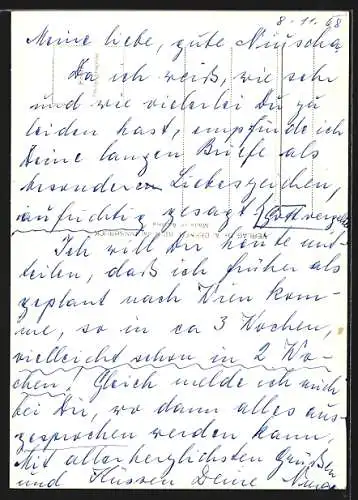 8-11.68
Meine liebe, gute Niuscha
Da ich weiß, wie sehr
und wie vielerlei Du zu
leiden hast, empfinde ich
Deine langen Briefe als
besondere Liebeszeichen,
aufrichtig gesagt!
Ich will Dir heute mit-
teilen, daß ich früher als
geplant nach Wien kom-
me, so in ca 3 Wochen,
vielleicht schon in 2 Wo-
chen! Gleich melde ich mich
bei Dir, wo dann alles aus-
gesprochen werden kann,
Mit allerherzlichsten Grüßen
und Küssen Deine